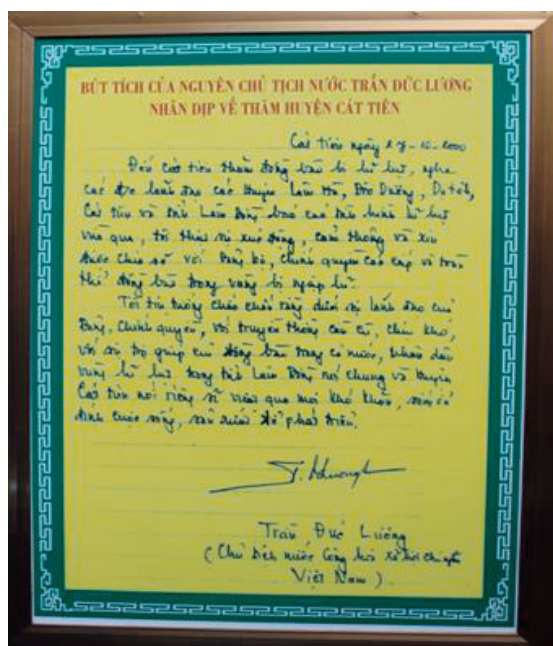 BÚT TÍCH CỦA NGUYÊN CHỦ TỊCH NƯỚC TRẦN ĐỨC LƯƠNG
NHÂN DỊP VỀ THĂM HUYỆN CÁT TIÊN
Cát tiên ngày 27-10-2000
Đến Cát tiên thăm đồng bào bị lũ lụt, nghe
các đ/c lãnh đạo các huyện Lâm Hà, Đạ tẻh,
Cát tiên và tỉnh Lâm Đồng báo cáo tình hình lũ lụt
vừa qua, tôi thật sự xúc động, cảm thông và xin
được chia sẻ với Đảng bộ, chính quyền các cấp và toàn
thể đồng bào trong vùng bị ngập lũ.
Tôi tin tưởng chắc chắn rằng dưới sự lãnh đạo của
Đảng, chính quyền, với truyền thống cần cù, chịu khó,
với sự trợ giúp của đồng bào trong cả nước, nhân dân
vùng lũ lụt trong tỉnh Lâm Đồng nói chung và huyện
Cát tiên nói riêng sẽ vượt qua mọi khó khăn, sớm ổn
định cuộc sống, sản xuất để phát triển.
Trần Đức Lương
(Chủ tịch nước Cộng hòa xã hội chủ nghĩa
Việt Nam)